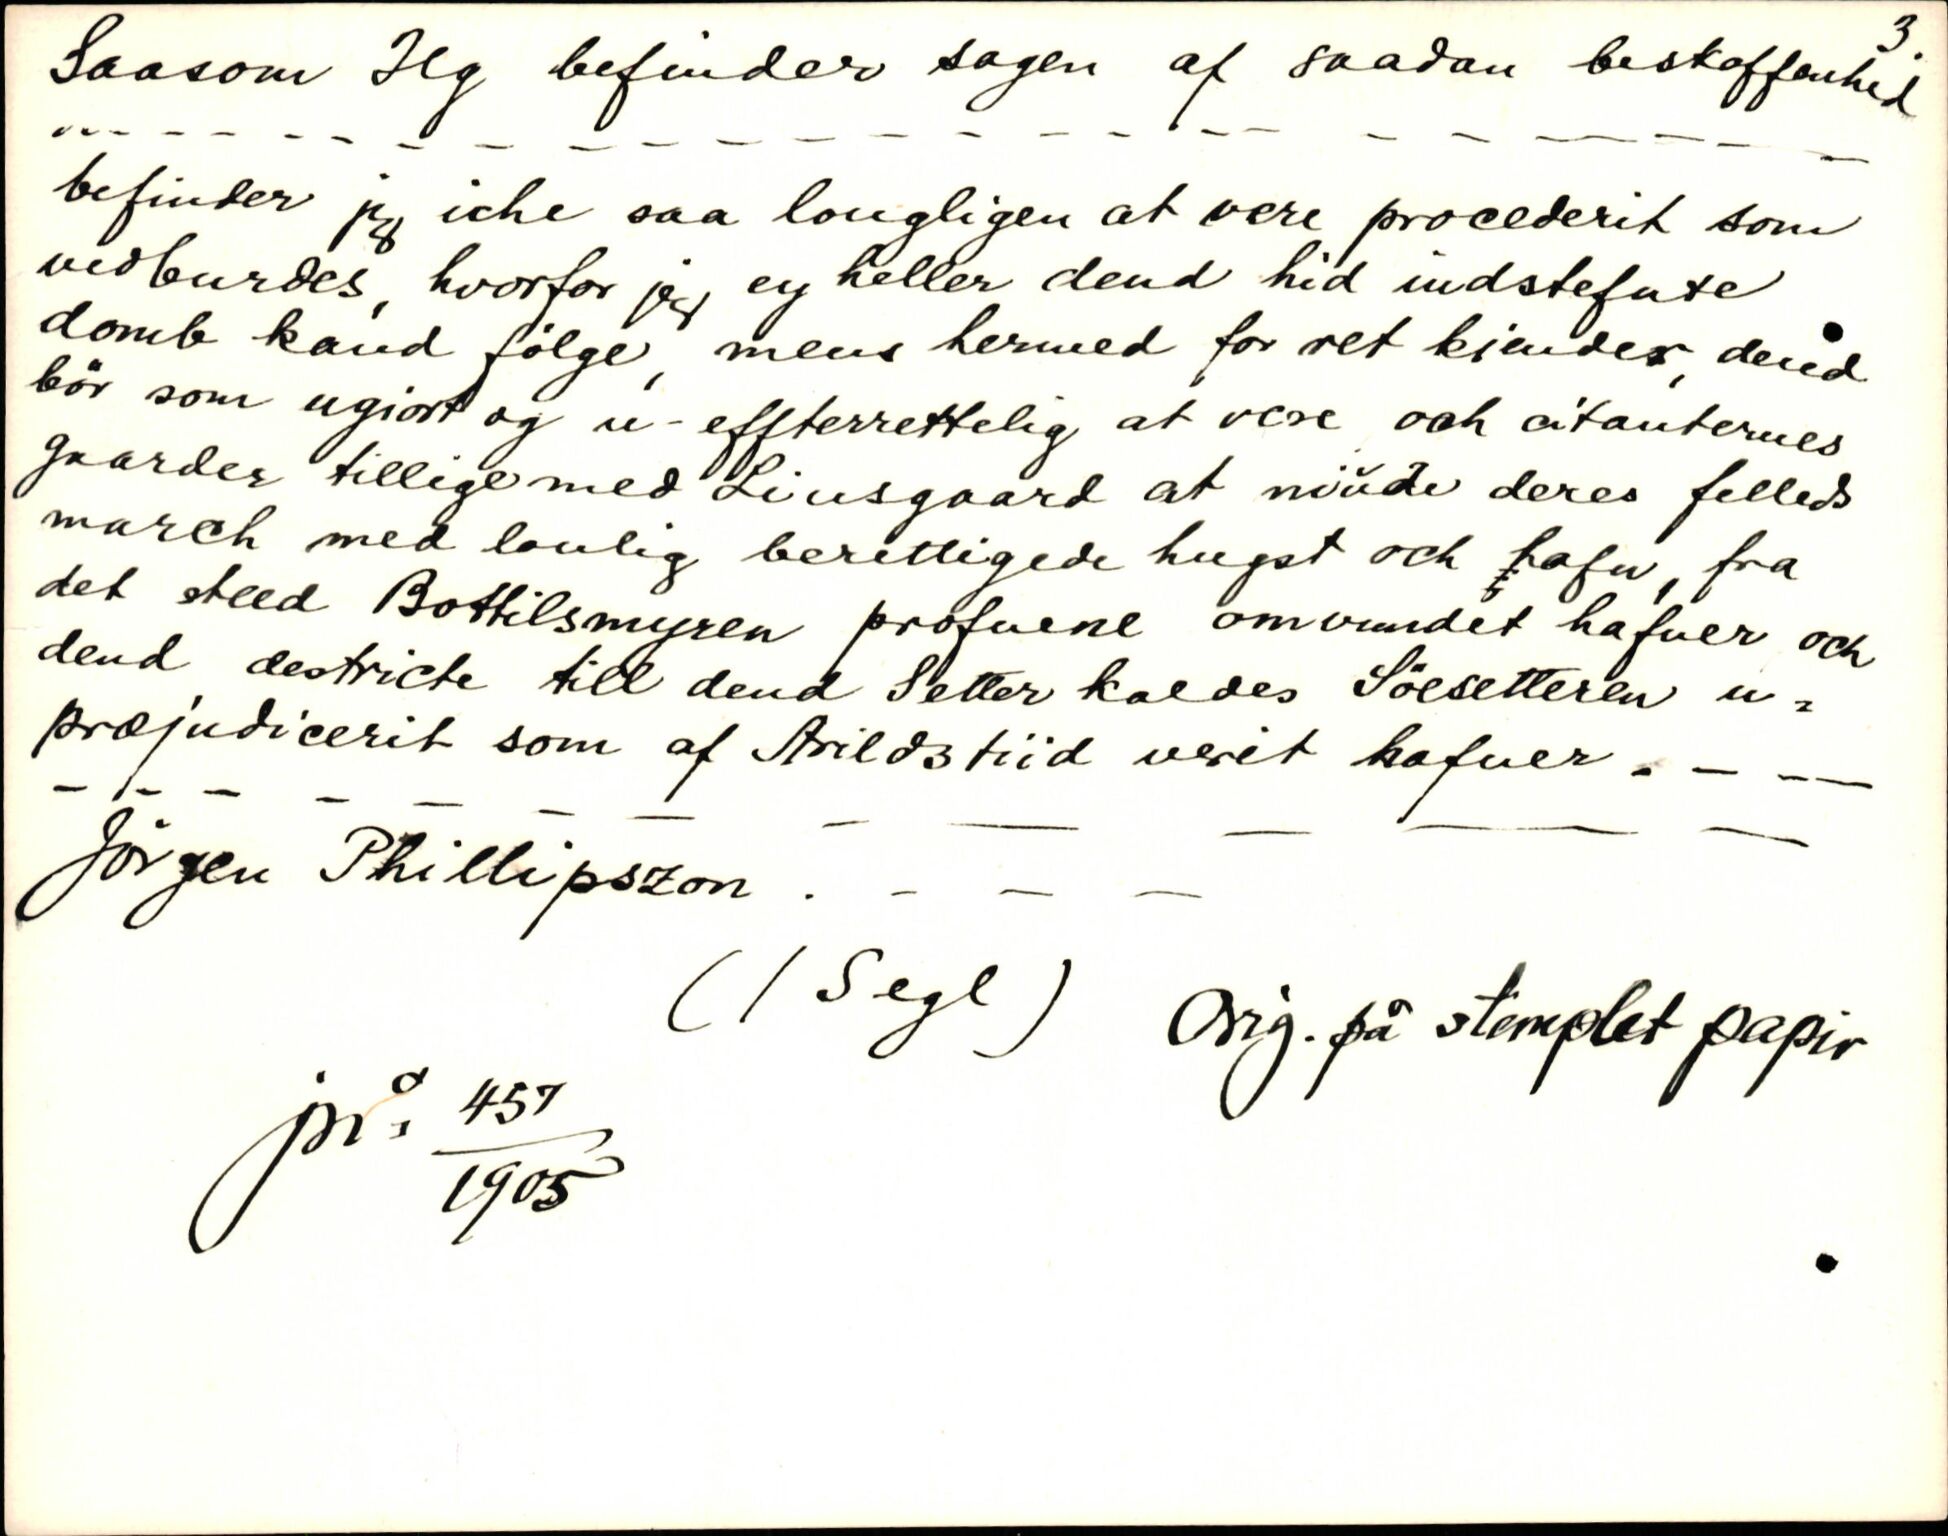 3.
Saasom Ieg befinder sagen af saadan beskaffenhed
befinder jeg iche saa lougligen at vere procederit som
vedburdes, hvorfor jeg ey heller dend hid indstefnte
domb kand fölge, mens hermed for ret kjender, dend
bör som ugiort og u-effterrettelig at vere och citanternes
gaarder tillige med Linsgaard at niüde deres felleds
march med loulig berettigede hugst och hafn, fra
det steed Bottilsmyren profuene omvundet hafuer och
dend destricte till dend Setter kaldes Söesetteren u=
præjudicerit som af Arildztiid verit hafuer. - - -
Jörgen Phillipszon. - - -
(1 Segl)
Orig. på stemplet papir
457
1905